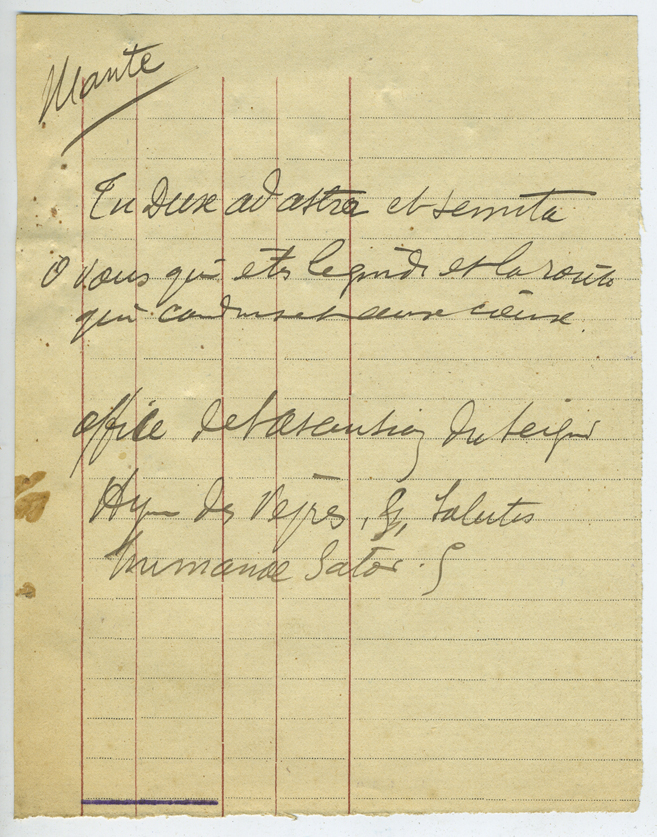 Mante
Tu Dux ad astra et semita
O vous qui êtes le guide et la route
qui conduiset aux cieux.
office de l'Ascension du Seign
Hym des Vêpres, Salutis
humanae Sator.